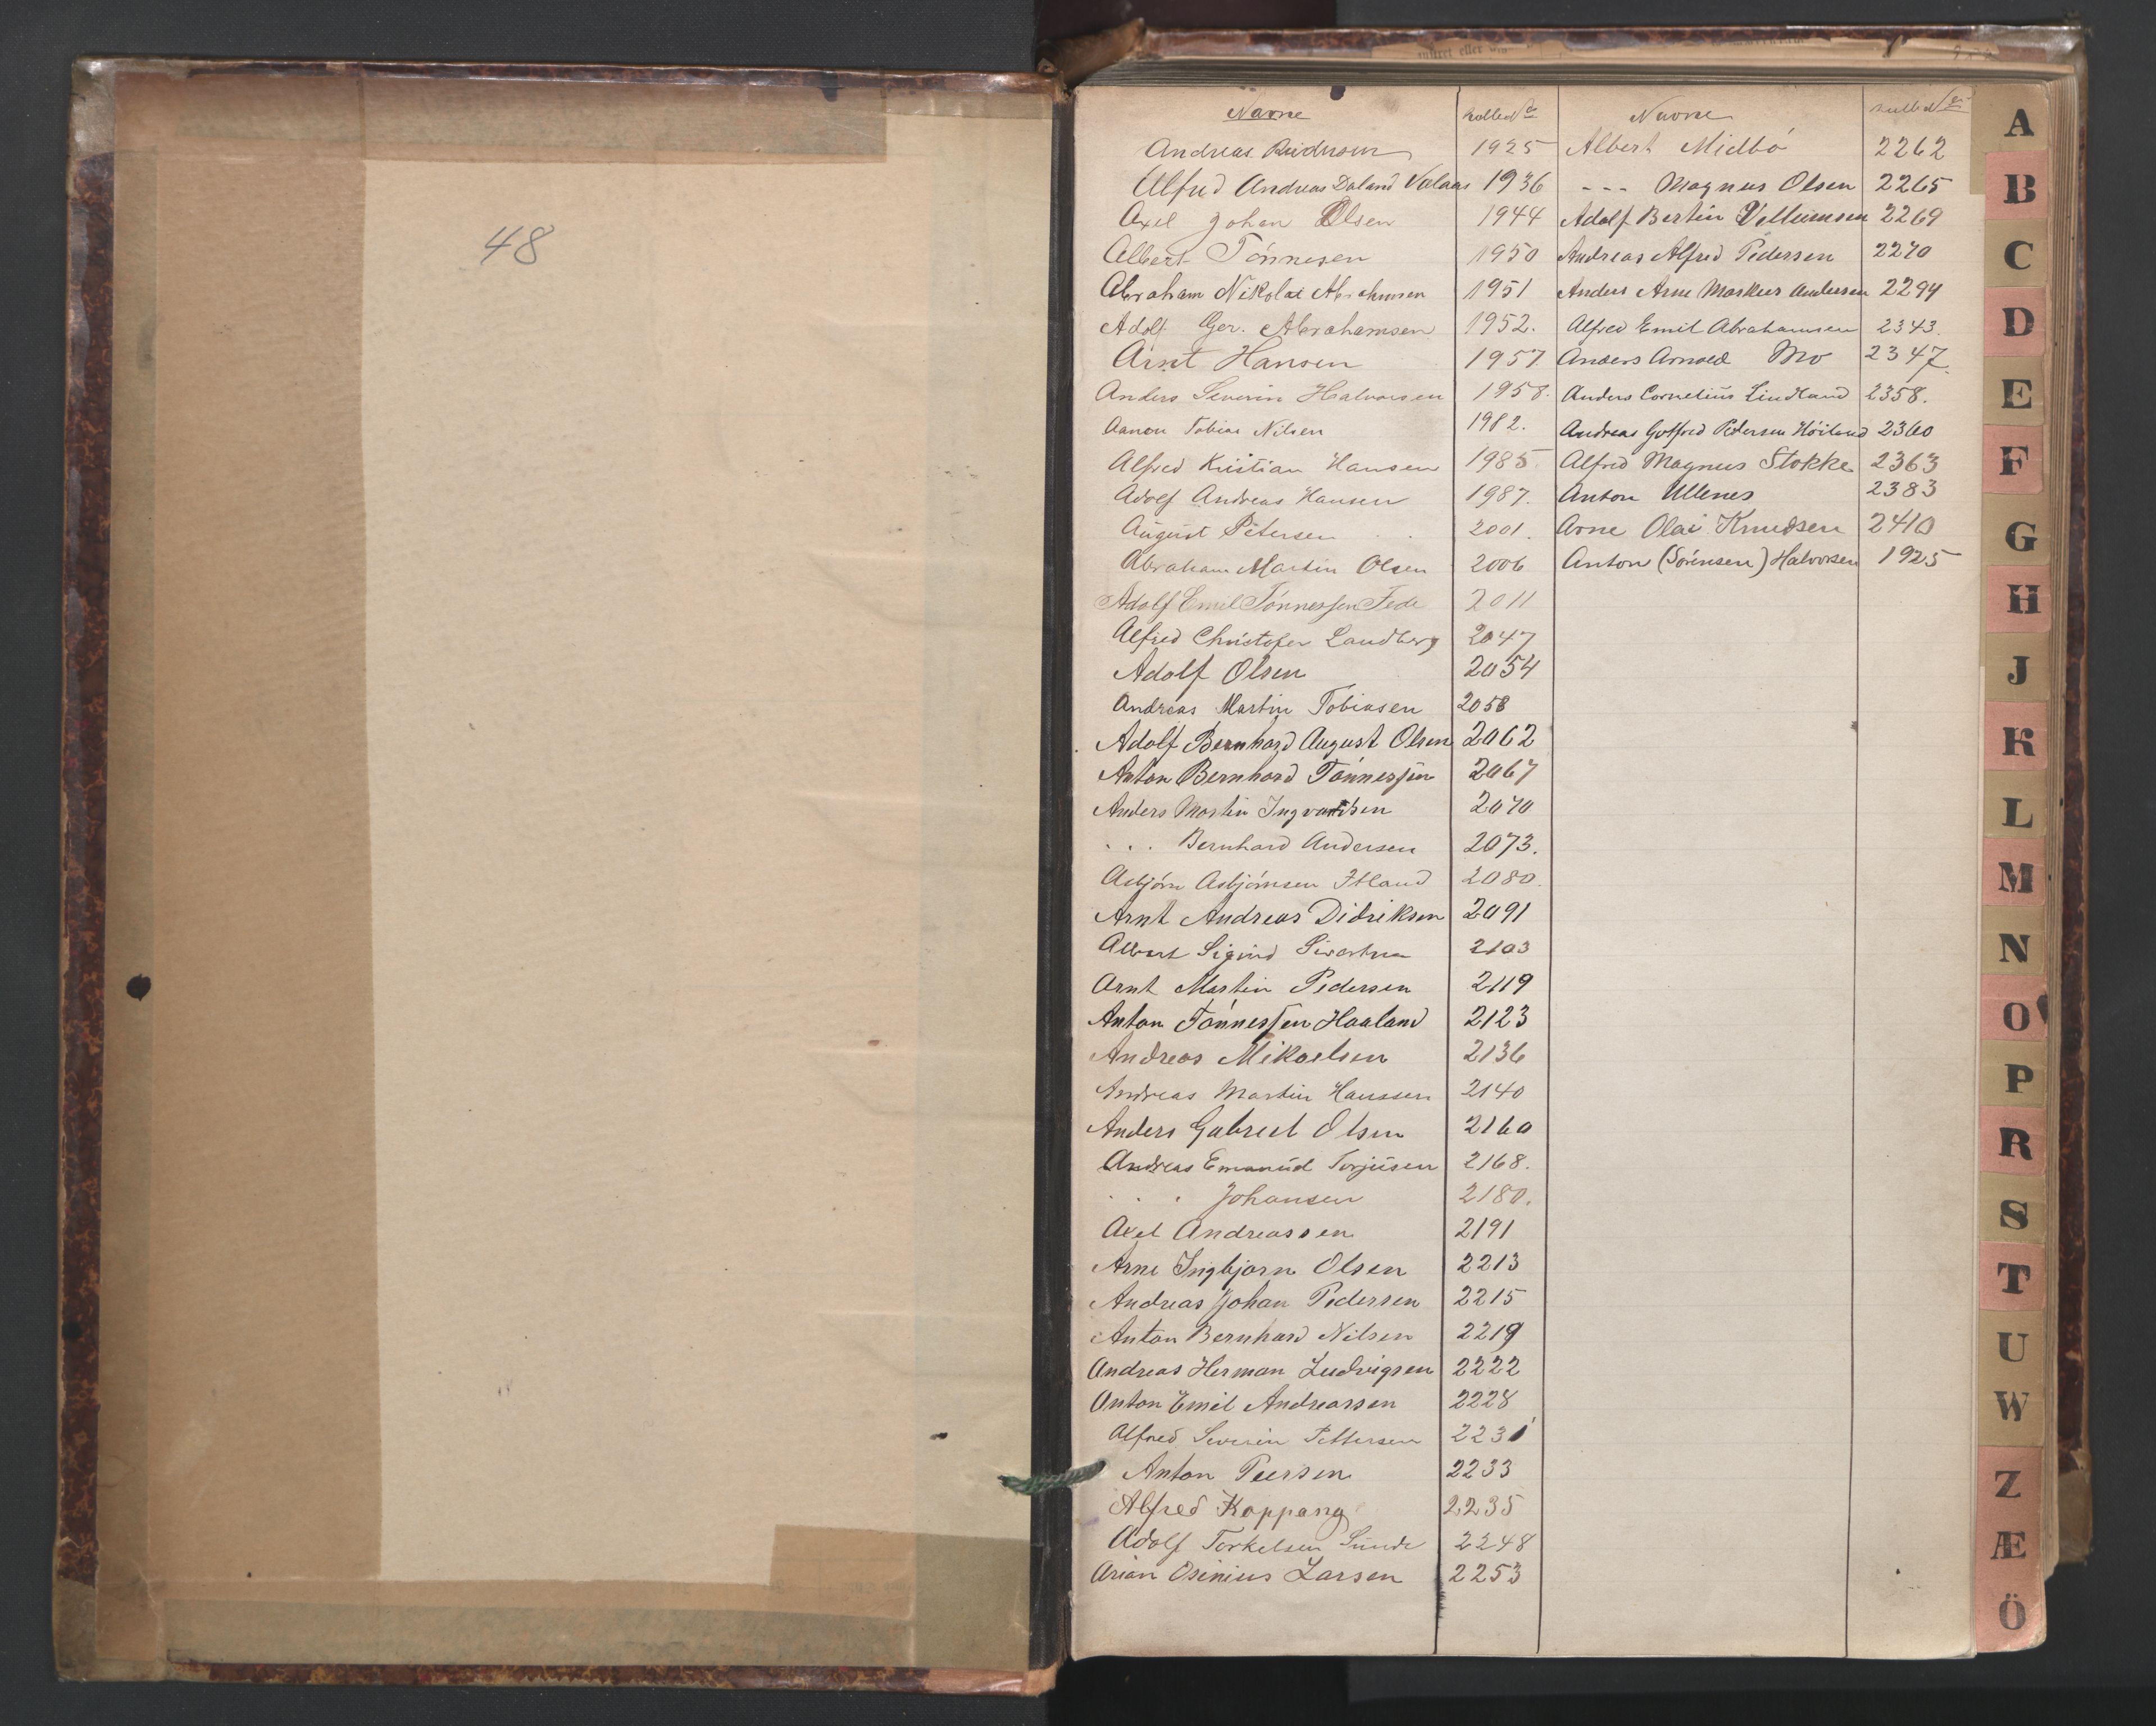 48
Navne RulleNo
Andreas 1925
Alfred Andreas Daland Valaas 1936
Axel Johan Olsen 1944
Albert Tönnesen 1950
Abraham Nikolai Abrahamsen 1951
Adolf Ger. Abrahamsen 1952.
Arnt Hansen 1957
Anders Severin Halvorsen 1958.
Aanen Tobias Nilsen 1982.
Alfred Kristian Hansen 1985.
Adolf Andreas Hansen 1987.
August Petersen 2001.
Abraham Martin Olsen 2006
Adolf Emil Tönnessen Fede 2011
Alfred Christofer Landberg 2047
Adolf Olsen 2054
Andreas Martin Tobiasen 2058
Adolf Bernhard August Olsen 2062
Anton Bernhard Tönnessen 2067
Anders Martin Ingvardsen 2070
. . . Bernhard Andersen 2073.
Asbjörn Asbjörnsen 2080.
Arnt Andreas Didriksen 2091
Albert Sigvind Sivertsen 2103
Arnt Martin Pedersen 2119
Anton Tönnessen Haaland 2123
Andreas Mikaelsen 2136
Andreas Martin Hanssen 2140
Anders Gabriel Olsen 2160
Andreas Emanuel Torjusen 2168.
. . . Johansen 2180.
Axel Andreassen 2191
Arne Ingbjorn Olsen 2213
Andreas Johan Pedersen 2215
Anton Bernhard Nilsen 2219
Andreas Herman Ludvigsen 2222
Anton Emil Andreassen 2228
Alfred Severin Pettersen 2231
Anton Peersen 2233
Alfred Koppang 2235
Adolf Torkelsen Sunde 2248
Arian Osinius Larsen 2253
Navne RulleNo
Albert Midbö 2262
--- Magnus Olsen 2265
Adolf Bertin Vellumsen 2269
Andreas Alfred Pedersen 2270
Anders Arne Markus Andersen 2294
Alfred Emil Abrahamsen 2343.
Anders Arnold Mo 2347.
Anders Cornelius Lindland 2358.
Andreas Gotfred Pedersen Höiland 2360
Alfred Magnus Stokke 2363
Anton Ullenes 2383
Arne Olai Knudsen 2410
Anton (Sörensen) Halvorsen 1925
A
B
C
D
E
F
G
H
J
K
L
M
N
O
P
R
S
T
U
W
Z
Æ
Ö